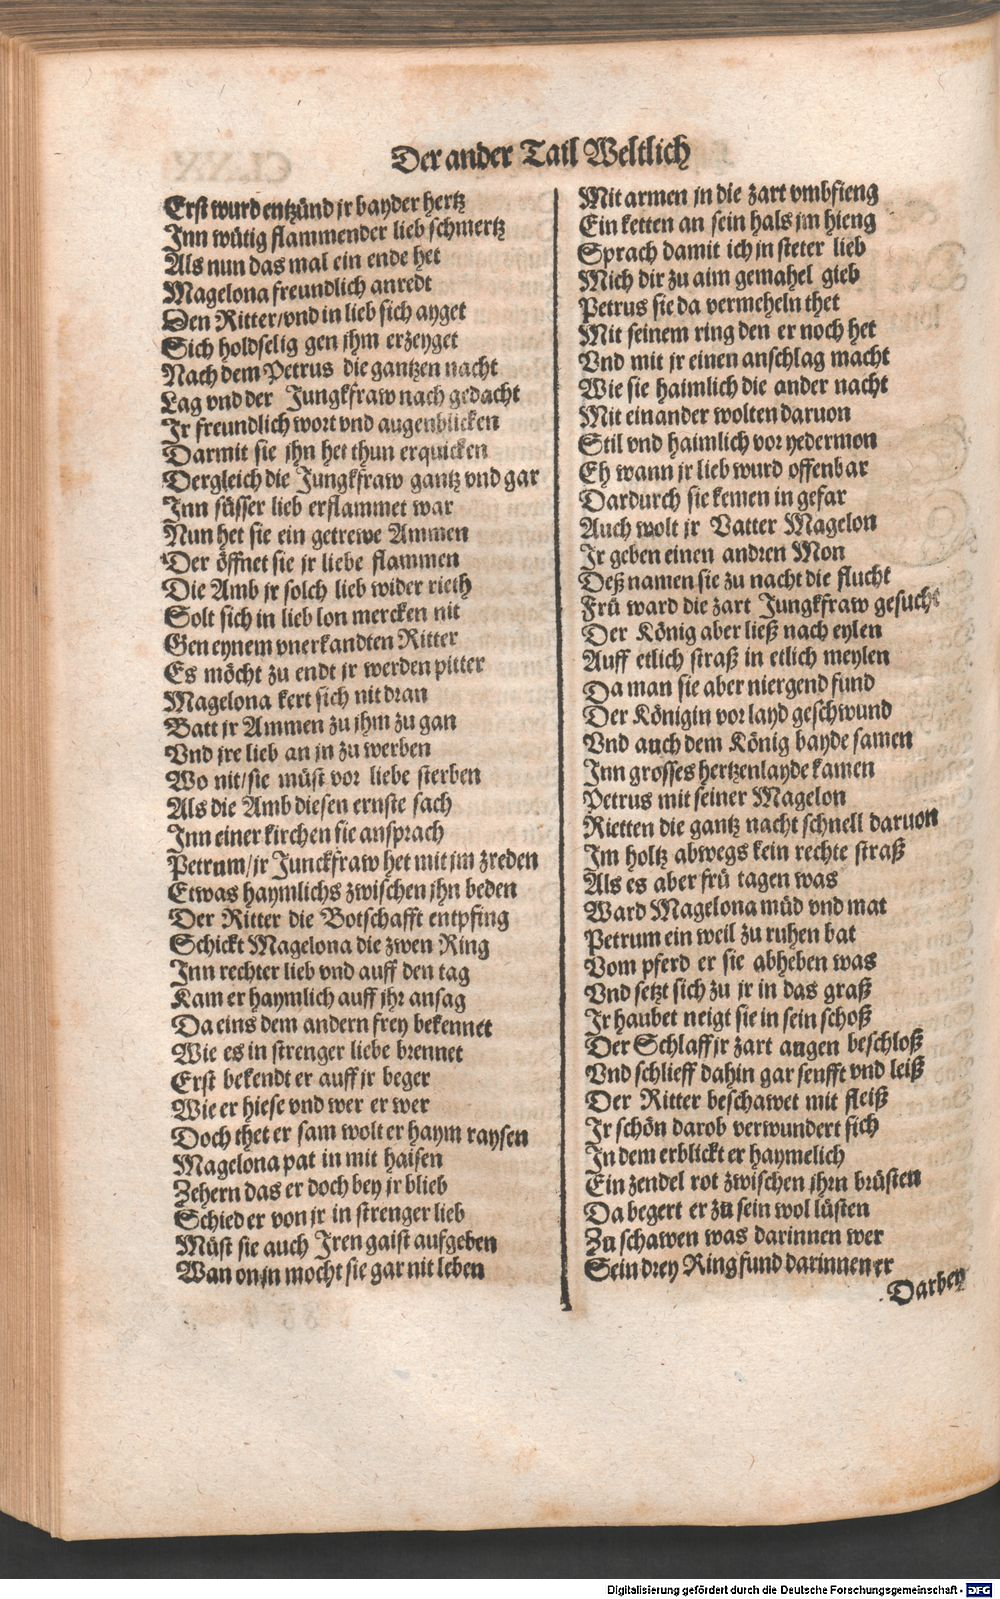 Der ander Tail Weltlich
Erst wurd entzünd jr bayder hertz
Inn wütig flammender lieb schmertz
Als nun das mal ein ende het
Magelona freundlich anredt
Den Ritter/vnd in lieb sich ayget
Sich holdselig gen jhm erzeyget
Nach dem Petrus die gantzen nacht
Lag vnd der Jungkfraw nach gedacht
Ir freundlich wort vnd augenblicken
Darmit sie jhn het thun erquicken
Dergleich die Jungkfraw gantz vnd gar
Inn süsser lieb erflammet war
Nun het sie ein getrewe Ammen
Der öffnet sie jr liebe flammen
Die Amb jr solch lieb wider rieth
Solt sich in lieb lon mercken nit
Gen eynem vnerkandten Ritter
Es möcht zu endt jr werden pitter
Magelona kert sich nit dran
Batt jr Ammen zu jhm zu gan
Vnd jre lieb an jn zu werben
Wo nit/sie müst vor liebe sterben
Als die Amb diesen ernste sach
Inn einer kirchen sie ansprach
Petrum/jr Junckfraw het mit jm zreden
Etwas haymlichs zwischen jhn beden
Der Ritter die Botschafft entpfing
Schickt Magelona die zwen Ring
Inn rechter lieb vnd auff den tag
Kam er haymlich auff jhr ansag
Da eins dem andern frey bekennet
Wie es in strenger liebe brennet
Erst bekendt er auff jr beger
Wie er hiese vnd wer er wer
Doch thet er sam wolt er haym raysen
Magelona pat in mit haisen
Zehern das er doch bey jr blieb
Schied er von jr in strenger lieb
Müst sie auch Iren gaist aufgeben
Wan on jn mocht sie gar nit leben
Mit armen jn die zart vmbfieng
Ein ketten an sein hals jm hieng
Sprach damit ich jn steter lieb
Mich dir zu aim gemahel gieb
Petrus sie da vermeheln thet
Mit seinem ring den er noch het
Vnd mit jr einen anschlag macht
Wie sie haimlich die ander nacht
Mit einander wolten daruon
Stil vnd haimlich vor yedermon
Eh wann jr lieb wurd offenbar
Dardurch sie kemen in gefar
Auch wolt jr Vatter Magelon
Ir geben einen andren Mon
Deß namen sie zu nacht die flucht
Frü ward die zart Jungkfraw gesucht
Der König aber ließ nach eylen
Auff etlich straß in etlich meylen
Da man sie aber niergend fund
Der Königin vor layd geschwund
Vnd auch dem König bayde samen
Inn grosses hertzenlayde kamen
Petrus mit seiner Magelon
Rietten die gantz nacht schnell daruon
Im holtz abwegs kein rechte straß
Als es aber frü tagen was
Ward Magelona müd vnd mat
Petrum ein weil zu ruhen bat
Vom pferd er sie abheben was
Vnd setzt sich zu jr in das graß
Ir haubet neigt sie in sein schoß
Der Schlaff jr zart augen beschloß
Vnd schlieff dahin gar senfft vnd leiß
Der Ritter beschawet mit fleiß
Ir schön darob verwundert sich
In dem erblickt er haymelich
Ein zendel rot zwischen jhrn brüsten
Da begert er zu sein wol lüsten
Zu schawen was darinnen wer
Sein drey Ring fund darinnen er
Darbey
Digitalisierung gefördert durch die Deutsche Forschungsgemeinschaft - DFG